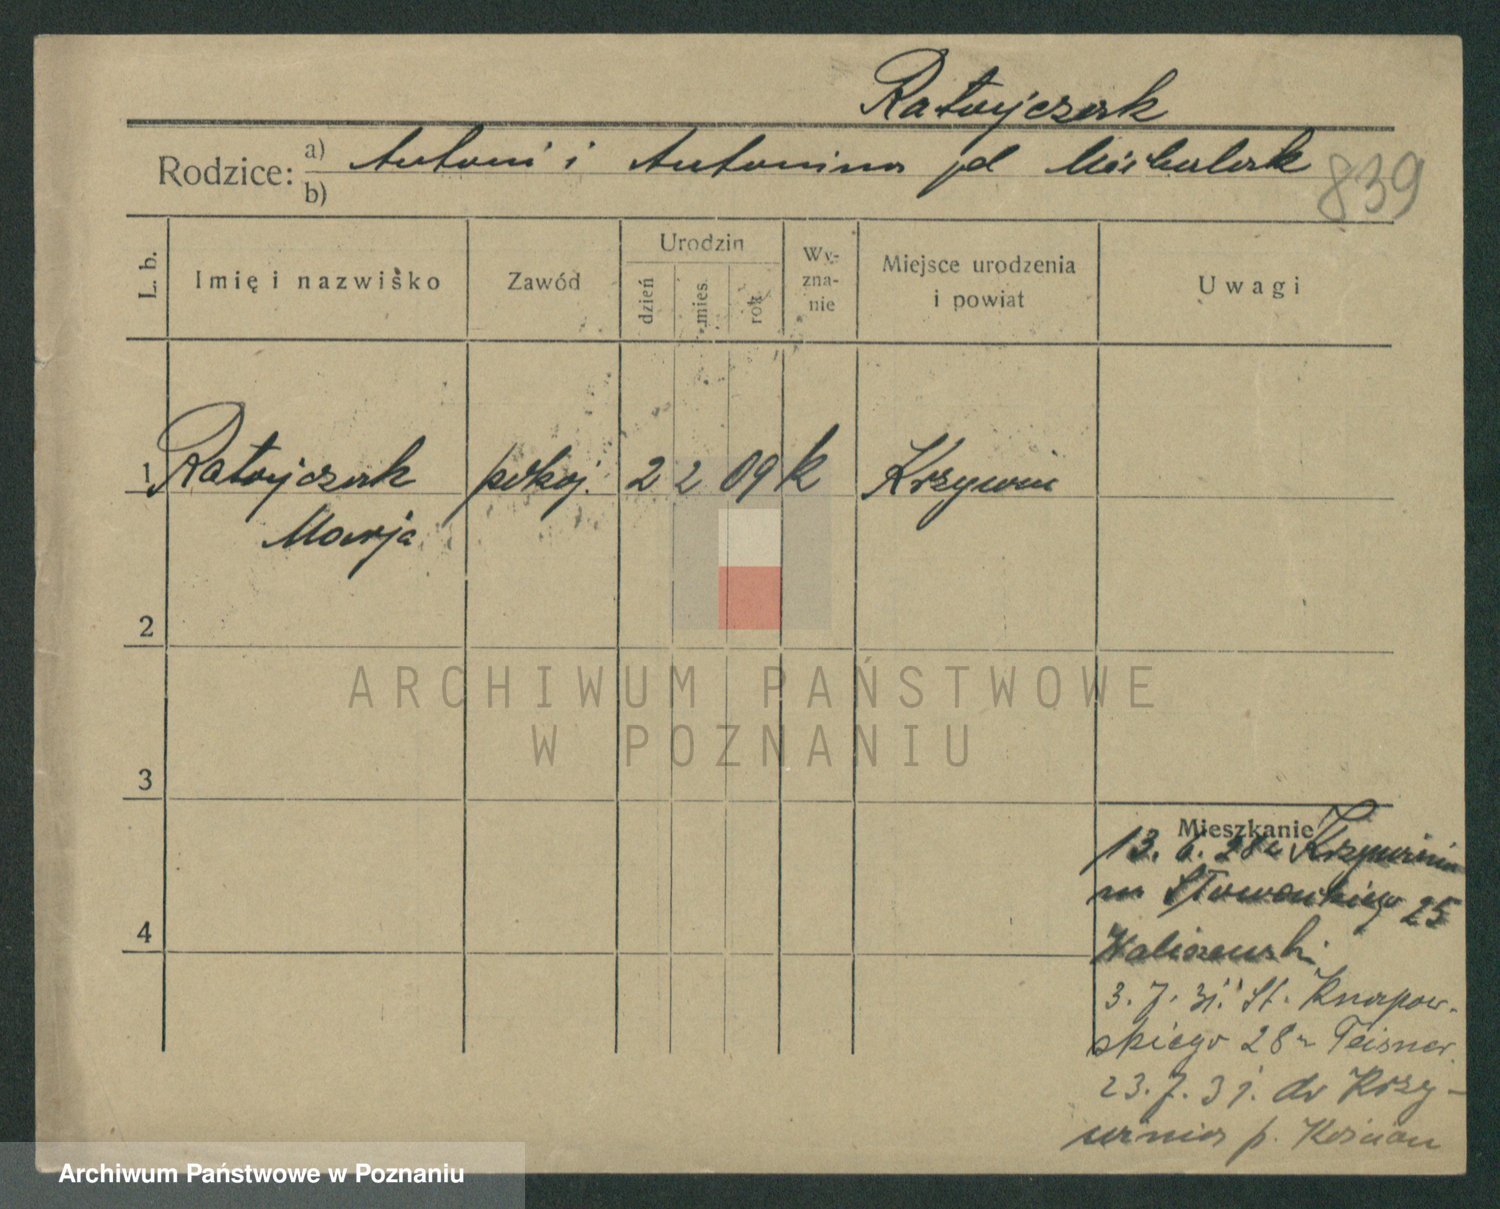 Ratajczak
Rodzice: a) Antoni i Antonina zd Michalak
b)
839
L. b.
Imię i nazwisko
Zawód
Urodzin
dzień
mies.
rok
Wy-
zna-
nie
Miejsce urodzenia
i powiat
Uwagi
1 Ratajczak pokoj. 2 2 09 k Krzywiń
Marja
2
3
4
Mieszkanie
13. 6. 28 z Krzywinia
na Słowackiego 25
Kaliszewski
3. 7. 31. St. Knapow-
skiego 28 Teisner
23. 7. 31. do Krzy-
winia p. Kościan
ARCHIWUM PAŃSTWOWE
W POZNANIU
Archiwum Państwowe w Poznaniu